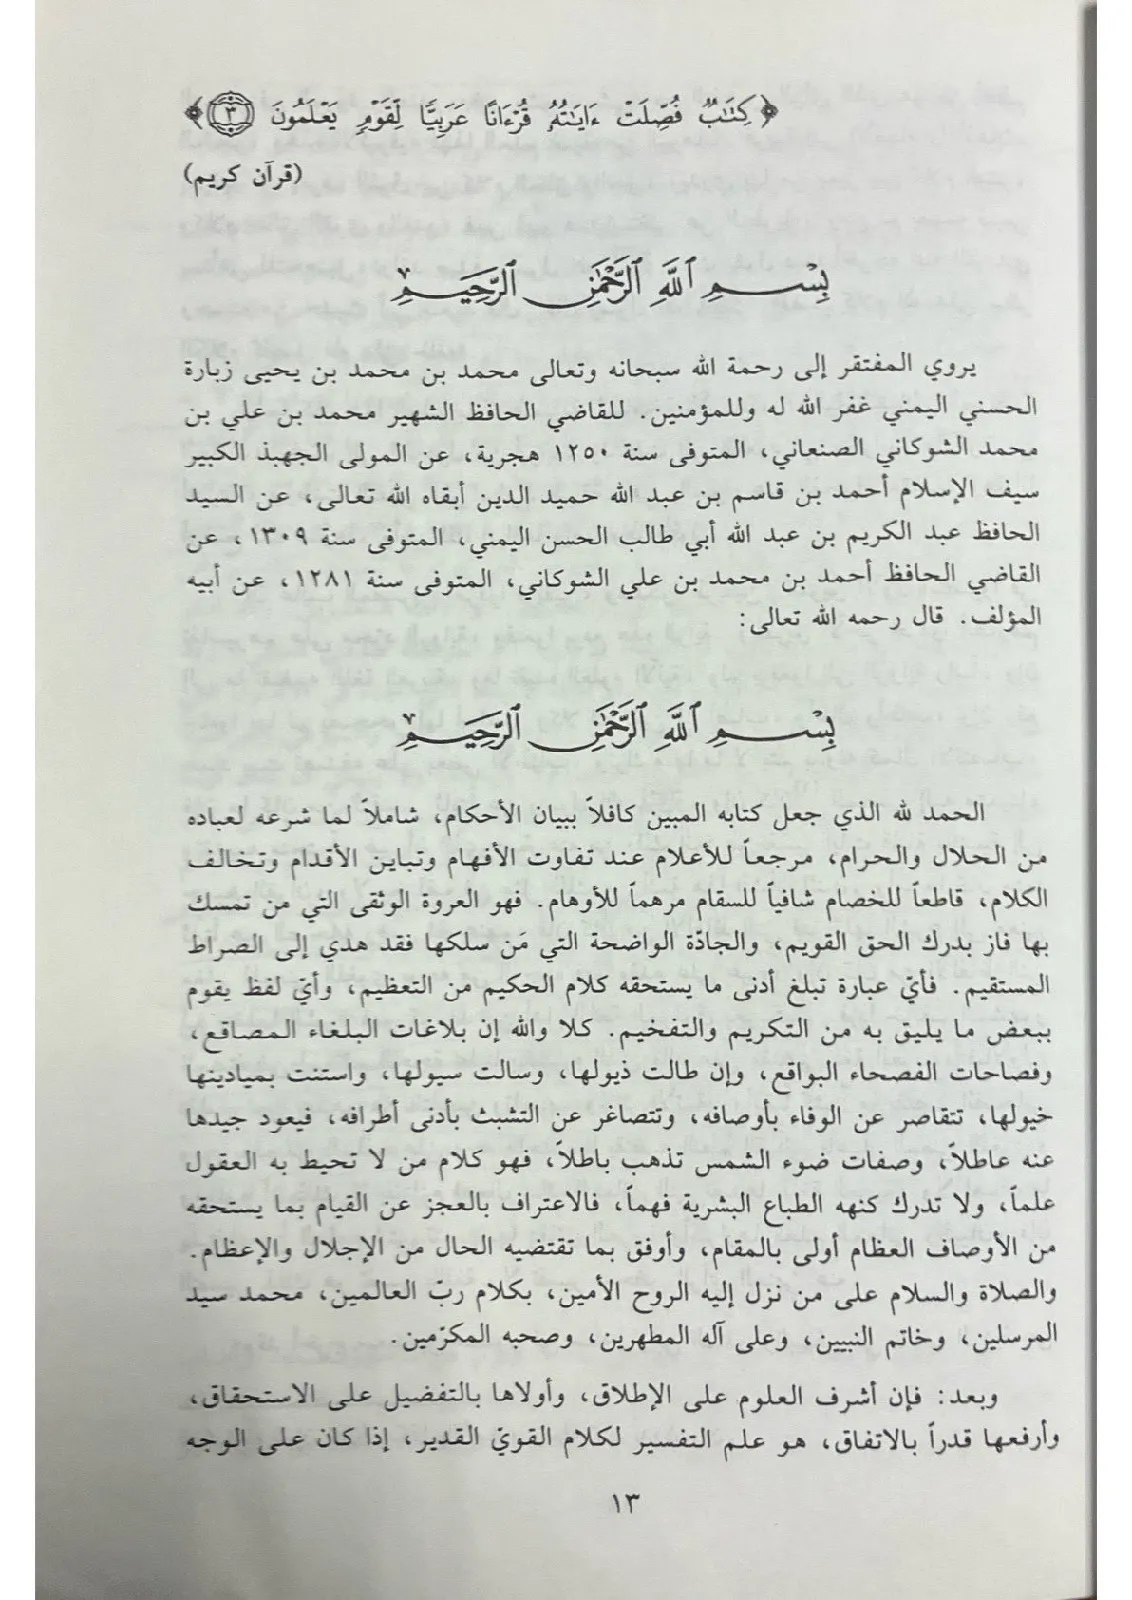 ﴿كِتَٰبٌ فُصِّلَتْ ءَايَٰتُهُۥ قُرْءَانًا عَرَبِيًّا لِّقَوْمٍ يَعْلَمُونَ ٣﴾
(قرآن كريم)
بِسْمِ ٱللَّهِ ٱلرَّحْمَٰنِ ٱلرَّحِيمِ
يروي المفتقر إلى رحمة الله سبحانه وتعالى محمد بن محمد بن يحيى زبارة
الحسني اليمني غفر الله له وللمؤمنين. للقاضي الحافظ الشهير محمد بن علي بن
محمد الشوكاني الصنعاني، المتوفى سنة ١٢٥٠ هجرية، عن المولى الجهبذ الكبير
سيف الإسلام أحمد بن قاسم بن عبد الله حميد الدين أبقاه الله تعالى، عن السيد
الحافظ عبد الكريم بن عبد الله أبي طالب الحسن اليمني، المتوفى سنة ١٣٠٩، عن
القاضي الحافظ أحمد بن محمد بن علي الشوكاني، المتوفى سنة ١٢٨١، عن أبيه
المؤلف. قال رحمه الله تعالى:
بِسْمِ ٱللَّهِ ٱلرَّحْمَٰنِ ٱلرَّحِيمِ
الحمد لله الذي جعل كتابه المبين كافلاً ببيان الأحكام، شاملاً لما شرعه لعباده
من الحلال والحرام، مرجعاً للأعلام عند تفاوت الأفهام وتباين الأقدام وتخالف
الكلام، قاطعاً للخصام شافياً للسقام مرهماً للأوهام. فهو العروة الوثقى التي من تمسك
بها فاز بدرك الحق القويم، والجادّة الواضحة التي مَن سلكها فقد هدي إلى الصراط
المستقيم. فأيّ عبارة تبلغ أدنى ما يستحقه كلام الحكيم من التعظيم، وأيّ لفظ يقوم
ببعض ما يليق به من التكريم والتفخيم. كلا والله إن بلاغات البلغاء المصاقع،
وفصاحات الفصحاء البواقع، وإن طالت ذيولها، وسالت سيولها، واستنت بميادينها
خيولها، تتقاصر عن الوفاء بأوصافه، وتتصاغر عن التشبث بأدنى أطرافه، فيعود جيدها
عنه عاطلاً، وصفات ضوء الشمس تذهب باطلاً، فهو كلام من لا تحيط به العقول
علماً، ولا تدرك كنهه الطباع البشرية فهماً، فالاعتراف بالعجز عن القيام بما يستحقه
من الأوصاف العظام أولى بالمقام، وأوفق بما تقتضيه الحال من الإجلال والإعظام.
والصلاة والسلام على من نزل إليه الروح الأمين، بكلام ربّ العالمين، محمد سيد
المرسلين، وخاتم النبيين، وعلى آله المطهرين، وصحبه المكرّمين.
وبعد: فإن أشرف العلوم على الإطلاق، وأولاها بالتفضيل على الاستحقاق،
وأرفعها قدراً بالاتفاق، هو علم التفسير لكلام القويّ القدير، إذا كان على الوجه
١٣